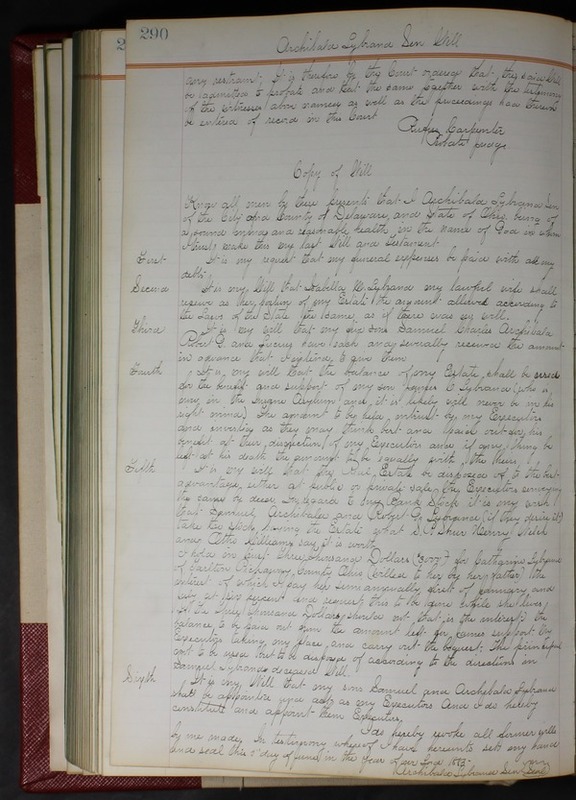 290
Archibald Lybrand Sen Will
any restraint, It is therefore by the Court ordered that, the said Will
be admitted to probate and that the same together with the testimony
of the witnesses above named as well as the proceedings had therein
be entered of record in this Court
Carpenter
Probate Judge
Copy of Will
Know all men by these presents that I Archibald Lybrand Sen
of the City and County of Delaware, and State of Ohio, being of
a sound mind and reasonable health, in the name of God in whom
I trust make this my last Will and testament
First It is my request that my funeral expenses be paid with all my
debts
Second It is my Will that Isabella W. Lybrand my lawful wife shall
receive as her portion of my Estate the amount allowed according to
the Laws of the State the same as if there was no will
Third It is my will that my six sons Samuel Charles Archibald
Robert G. and have each and severally received the amount
in advance that I to give them
Fourth It is my will that the balance of my Estate, shall be used
for the benefit and support of my son James C Lybrand (who is
now in the Insane Asylum and it is likely will never be in his
right mind) The amount to be held in trust by my Executors
and invested as they may think best and paid out for his
benefit at the discretion of my Executors and if any thing be
left at his death the amount to be equally with the heirs
Fifth It is my will that the Real Estate be disposed of to the best
advantage, either at public or private sale, the Executors conveying
the same by deed. In regard to my Bank Stock it is my will
that Samuel, Archibald and Robert G. Lybrand (if they desire it)
take the Stock, the Estate what Henry Welch
and Williams say it is worth
I hold in trust three thousand Dollars for Catharine Lybrand
of Tarlton Pickaway County Ohio (willed to her by her father) the
interest of which I pay her semiannually first of January and
July, at six percent and request this to be done while she lives
If the three thousand Dollars should out, that is, the interest, the
balance to be paid out from the amount left for James support, the
Executors taking my place and carry out the bequest. The principal
not to be used but to be disposed of according to the directions in
Samuel Lybrand deceased Will
Sixth It is my Will that my sons Samuel and Archibald Lybrand
shall be appointed and act as my Executors And I do hereby
constitute and appoint them Executors,
I do hereby revoke all former wills
by me made. In testimony whereof I have hereunto set my hand
and seal this day of June in the year of our Lord
Archibald Lybrand Sen Seal